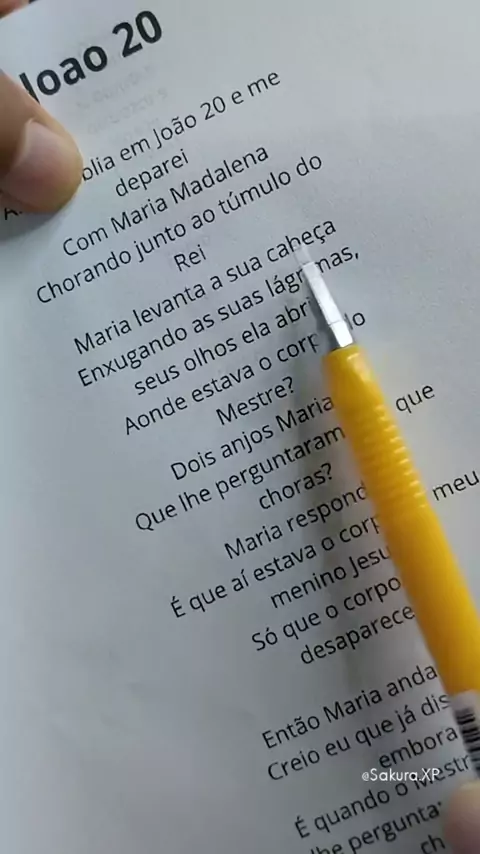 João 20
blia em João 20 e me
deparei
Com Maria Madalena
Chorando junto ao túmulo do
Rei
Maria levanta a sua cabeça
Enxugando as suas lágrimas,
seus olhos ela abri
Aonde estava o corp lo
Mestre?
Dois anjos Maria
que
Que lhe perguntaram
choras?
Maria respond meu
É que aí estava o corp
menino Jesu
Só que o corpo
desaparece
Então Maria anda
Creio eu que já dis
embora
@Sakura.XP
É quando o Mestr
lhe pergunta
ch